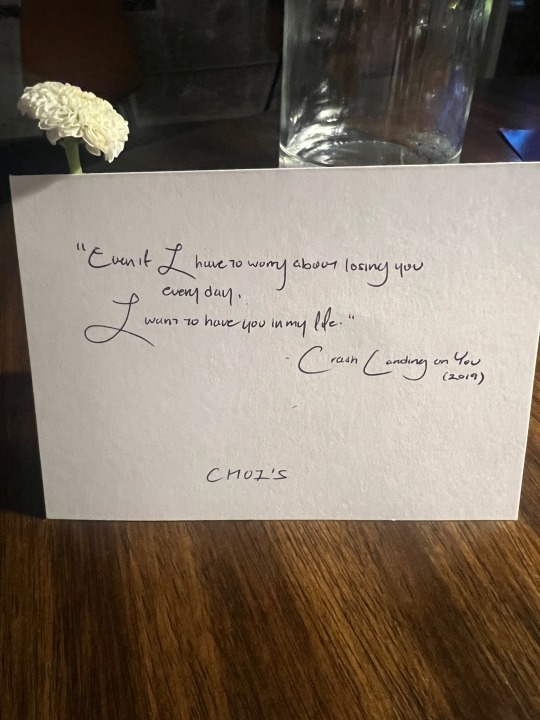 "Even if I have to worry about losing you
every day,
I want to have you in my life."
- Crash Landing on You
(2019)
CHOI'S